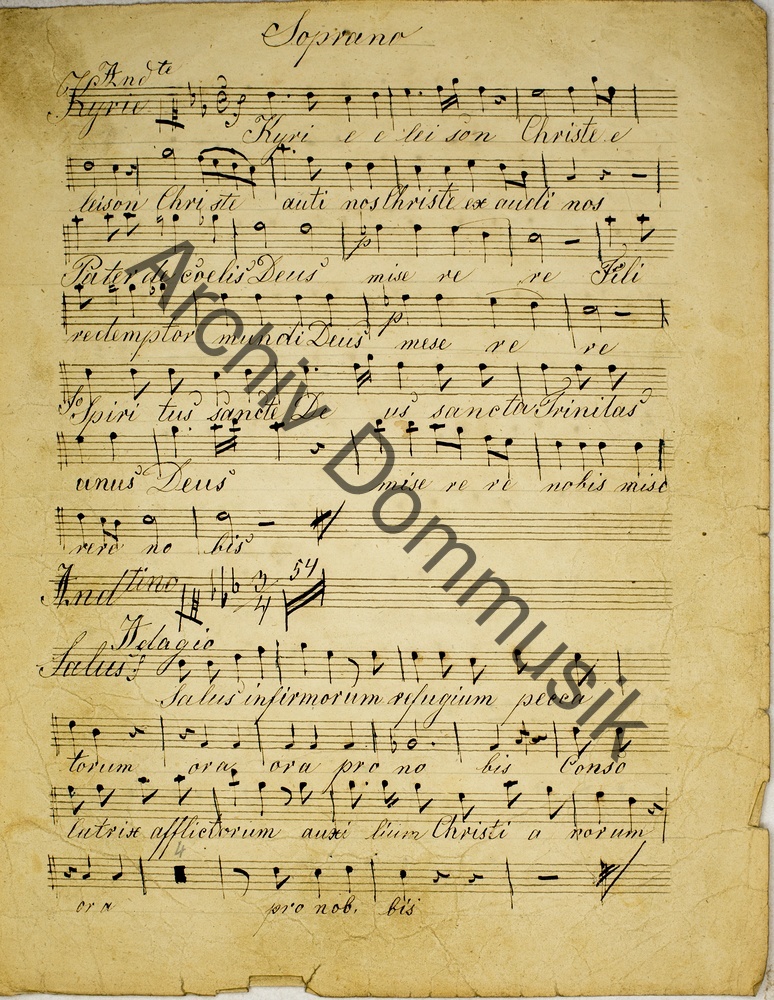 Soprano
And te
Kyrie
Kyri e e lei son Christe e
leison Christe auti nos Christe ex audi nos
Pater de coelis Deus mise re re Fili
redemptor mundi Deus mese re re
Spiri tus sancte De us sancta Trinitas
unus Deus mise re re nobis mise
rere no bis
And tino 3/4 54
Adagio
Salus
Salus infirmorum refugium pecca
torum ora ora pro no bis Conso
latrix afflictorum auxi lium Christi a norum
4
ora pro nob. bis
Archiv Dommusik